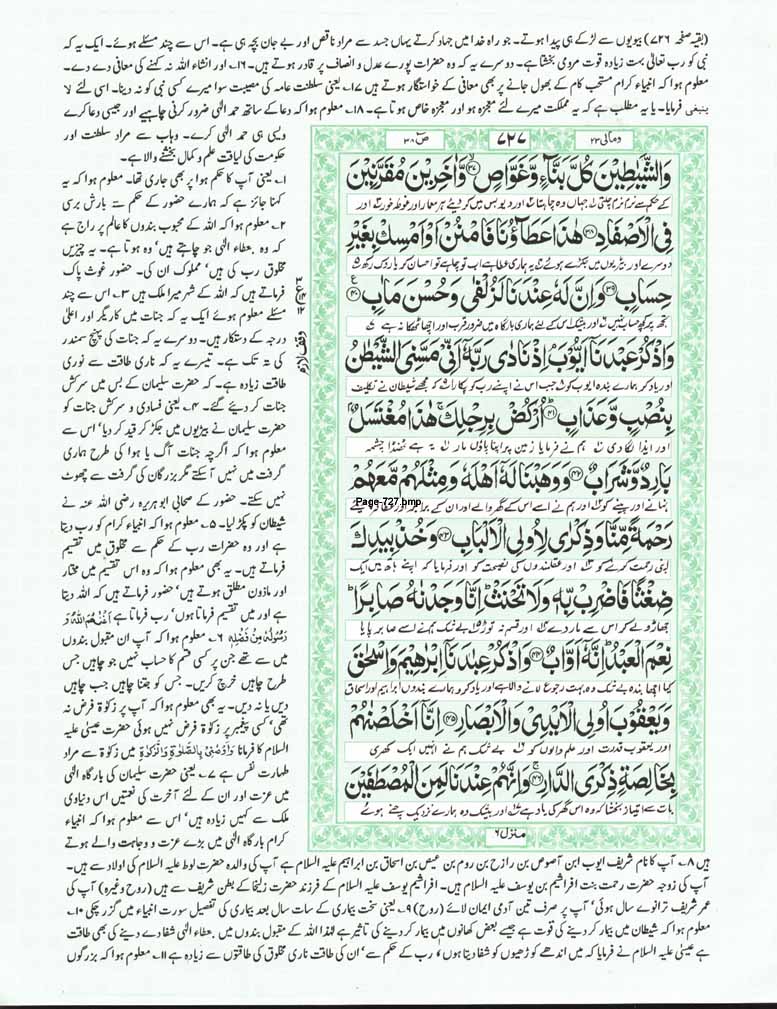 (بقیہ صفحہ ۷۲۶) بیویوں سے لڑکے ہی پیدا ہوتے۔ جو راہ خدا میں جہاد کرتے یہاں جسد سے مراد ناقص اور بے جان بچہ ہی ہے۔ اس سے چند مسئلے ہوئے۔ ایک یہ کہ
نبی کو رب تعالٰی بہت زیادہ قوت مردمی بخشتا ہے۔ دوسرے یہ کہ وہ حضرات پورے عدل و انصاف پر قادر ہوتے ہیں۔ ۱۶۔ اور انشاء اللہ نہ کہنے کی معافی دے دے۔
معلوم ہوا کہ انبیاء کرام مستحب کام کے بھول جانے پر بھی معافی کے خواستگار ہوتے ہیں ۱۷۔ یعنی سلطنت عامہ کی مصیبت سوا میرے کسی نبی کو نہ دینا۔ اسی لئے لا
ینبغی فرمایا۔ یا یہ مطلب ہے کہ یہ مملکت میرے لئے معجزہ ہو اور معجزہ خاص ہوتا ہے۔ ۱۸۔ معلوم ہوا کہ دعا کے ساتھ حمد الٰہی ضرور کرنی چاہیے اور جیسی دعا کرے
ویسی ہی حمد الٰہی کرے۔ وہاب سے مراد سلطنت اور
حکومت کی لیاقت علم و کمال بخشنے والا ہے۔
۱۔ یعنی آپ کا حکم ہوا پر بھی جاری تھا۔ معلوم ہوا کہ یہ
کہنا جائز ہے کہ ہمارے حضور کے حکم سے بارش برسی
۲۔ معلوم ہوا کہ اللہ کے محبوب بندوں کا عالم پر راج ہے
کہ وہ ،عطاء الٰہی جو چاہتے ہیں، وہ ہوتا ہے۔ یہ چیزیں
مخلوق رب کی ہیں، مملوک ان کی۔ حضور غوث پاک
فرماتے ہیں کہ اللہ کے شہر میرا ملک ہیں ۳۔ اس سے چند
مسئلے معلوم ہوئے ایک یہ کہ جنات میں کاریگر اور اعلیٰ
درجہ کے دستکار ہیں۔ دوسرے یہ کہ جنات کی پہنچ سمندر
کی تہ تک ہے۔ تیسرے یہ کہ ناری طاقت سے نوری
طاقت زیادہ ہے۔ کہ حضرت سلیمان کے بس میں سرکش
جنات کر دیئے گئے۔ ۴۔ یعنی فسادی و سرکش جنات کو
حضرت سلیمان نے بیڑیوں میں جکڑ کر قید کر دیا، اس سے
معلوم ہوا کہ اگرچہ جنات آگ یا ہوا کی طرح ہماری
گرفت میں نہیں آ سکتے مگر بزرگان کی گرفت سے چھوٹ
نہیں سکتے۔ حضور کے صحابی ابو ہریرہ رضی اللہ عنہ نے
شیطان کو پکڑ لیا۔ ۵۔ معلوم ہوا کہ انبیاء کرام کو رب دیتا
ہے اور وہ حضرات رب کے حکم سے مخلوق میں تقسیم
فرماتے ہیں۔ یہ بھی معلوم ہوا کہ وہ اس تقسیم میں مختار
اور ماذون مطلق ہوتے ہیں، حضور فرماتے ہیں کہ اللہ دیتا
ہے اور میں تقسیم فرماتا ہوں، رب فرماتا ہے اَغْنٰهُمُ اللّٰهُ وَ
رَسُوْلُهٗ مِنْ فَضْلِهٖ ۶۔ معلوم ہوا کہ آپ ان مقبول بندوں
میں سے تھے جن پر کسی قسم کا حساب نہیں جو چاہیں جس
طرح چاہیں خرچ کریں۔ جس کو جتنا چاہیں جب چاہیں
دیں یا نہ دیں۔ یہ بھی معلوم ہوا کہ آپ پر زکوٰۃ فرض نہ
تھی، کسی پیغمبر پر زکوٰۃ فرض نہیں ہوئی حضرت عیسیٰ علیہ
السلام کا فرمانا وَاَوْصٰنِیْ بِالصَّلٰوةِ وَالزَّكٰوةِ میں زکوٰۃ سے مراد
طہارت نفس ہے ۷۔ یعنی حضرت سلیمان کی بارگاہ الٰہی
میں عزت اور ان کے لئے آخرت کی نعمتیں اس دنیاوی
ملک سے کہیں زیادہ ہیں، اس سے معلوم ہوا کہ انبیاء
کرام بارگاہ الٰہی میں بڑے عزت و وجاہت والے ہوتے
ومالی ۲۳
۷۲۷
ص ۳۸
وَالشَّيٰطِيْنَ كُلَّ بَنَّآءٍ وَّغَوَّاصٍ ﴿۳۷﴾ وَّاٰخَرِيْنَ مُقَرَّنِيْنَ
فِي الْاَصْفَادِ ﴿۳۸﴾ هٰذَا عَطَآؤُنَا فَامْنُنْ اَوْ اَمْسِكْ بِغَيْرِ
دوسرے اور بیڑیوں میں جکڑے ہوئے یہ ہماری عطا ہے اب تو چاہے تو احسان کر یا روک رکھ
حِسَابٍ ﴿۳۹﴾ وَاِنَّ لَهٗ عِنْدَنَا لَزُلْفٰى وَحُسْنَ مَاٰبٍ ﴿۴۰﴾
تجھ پر کچھ حساب نہیں اور بیشک اس کے لئے ہماری بارگاہ میں ضرور قرب اور اچھا ٹھکانا ہے
وَاذْكُرْ عَبْدَنَآ اَيُّوْبَ اِذْ نَادٰى رَبَّهٗٓ اَنِّيْ مَسَّنِيَ الشَّيْطٰنُ
اور یاد کر ہمارے بندہ ایوب کو جب اس نے اپنے رب کو پکارا کہ مجھے شیطان نے تکلیف
بِنُصْبٍ وَّعَذَابٍ ﴿۴۱﴾ اُرْكُضْ بِرِجْلِكَ هٰذَا مُغْتَسَلٌۢ
اور ایذا لگا دی ہم نے فرمایا زمین پر اپنا پاؤں مار یہ ہے ٹھنڈا چشمہ
بَارِدٌ وَّشَرَابٌ ﴿۴۲﴾ وَوَهَبْنَا لَهٗٓ اَهْلَهٗ وَمِثْلَهُمْ مَّعَهُمْ
Page-727.bmp
نہانے اور پینے کو اور ہم نے اسے اس کے گھر والے اور ان کے برابر اور
رَحْمَةً مِّنَّا وَذِكْرٰى لِاُولِي الْاَلْبَابِ ﴿۴۳﴾ وَخُذْ بِيَدِكَ
اپنی رحمت کرنے کو اور عقلمندوں کی نصیحت کو اور فرمایا کہ اپنے ہاتھ میں ایک
ضِغْثًا فَاضْرِبْ بِّهٖ وَلَا تَحْنَثْ اِنَّا وَجَدْنٰهُ صَابِرًا
جھاڑو لے کر اس سے مار دے اور قسم نہ توڑ بے شک ہم نے اسے صابر پایا
نِعْمَ الْعَبْدُ اِنَّهٗٓ اَوَّابٌ ﴿۴۴﴾ وَاذْكُرْ عِبٰدَنَآ اِبْرٰهِيْمَ وَاِسْحٰقَ
کیا اچھا بندہ بے شک وہ بہت رجوع لانے والا ہے اور یاد کرو ہمارے بندوں ابراہیم اور اسحاق
وَيَعْقُوْبَ اُولِي الْاَيْدِيْ وَالْاَبْصَارِ ﴿۴۵﴾ اِنَّآ اَخْلَصْنٰهُمْ
اور یعقوب قدرت اور علم والوں کو بے شک ہم نے انہیں ایک کھری
بِخَالِصَةٍ ذِكْرَى الدَّارِ ﴿۴۶﴾ وَاِنَّهُمْ عِنْدَنَا لَمِنَ الْمُصْطَفَيْنَ
بات سے امتیاز بخشا کہ وہ اس گھر کی یاد ہے اور بیشک وہ ہمارے نزدیک چنے ہوئے
منزل ۶
وقف لازم
ہیں ۸۔ آپ کا نام شریف ایوب ابن آصوص بن رازح بن روم بن عیص بن اسحاق بن ابراہیم علیہ السلام ہے آپ کی والدہ حضرت لوط علیہ السلام کی اولاد سے ہیں۔
آپ کی زوجہ حضرت رحمت بنت افراثیم بن یوسف علیہ السلام ہیں۔ افراثیم یوسف علیہ السلام کے فرزند حضرت زلیخا کے بطن شریف سے ہیں (روح وغیرہ) آپ کی
عمر شریف ترانوے سال ہوئی، آپ پر صرف تین آدمی ایمان لائے (روح) ۹۔ یعنی سخت بیماری کے سات سال بعد بیماری کی تفصیل سورت انبیاء میں گزر چکی ۱۰۔
معلوم ہوا کہ شیطان میں بیمار کر دینے کی قوت ہے جیسے بعض کھانوں میں بیمار کر دینے کی تاثیر ہے لہٰذا اللہ کے مقبول بندوں میں ،عطاء الٰہی شفا دے دینے کی بھی طاقت
ہے عیسیٰ علیہ السلام نے فرمایا کہ میں اندھے کوڑھیوں کو شفا دیتا ہوں، رب کے حکم سے، ان کی طاقت ناری مخلوق کی طاقتوں سے زیادہ ہے ۱۱۔ معلوم ہوا کہ بزرگوں